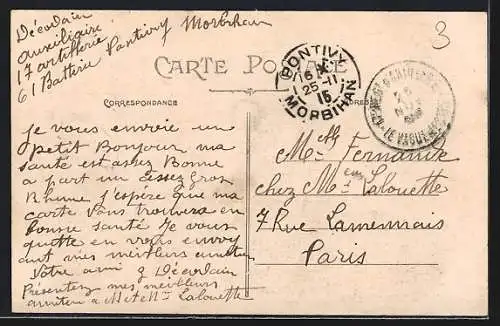 Décodain
auxiliaire
17 artillerie
61 Batterie Pontivy Morbihan
3
CARTE POSTALE
CORRESPONDANCE
PONTIVY
25-11
15
MORBIHAN
LE VAGUEMESTRE
Je vous envoie un
petit Bonjour ma
santé est assez Bonne
a part un assez gros
Rhume j'espère que ma
carte vous trouvera en
bonne santé Je vous
quitte en vous envoy
ant mes meilleurs amitiés
Votre ami g Décodain
Présentez mes meilleurs
amitiés a M et Mme Lalouette
Melle Fernande
chez Mme Lalouette
7 Rue Lamennais
Paris